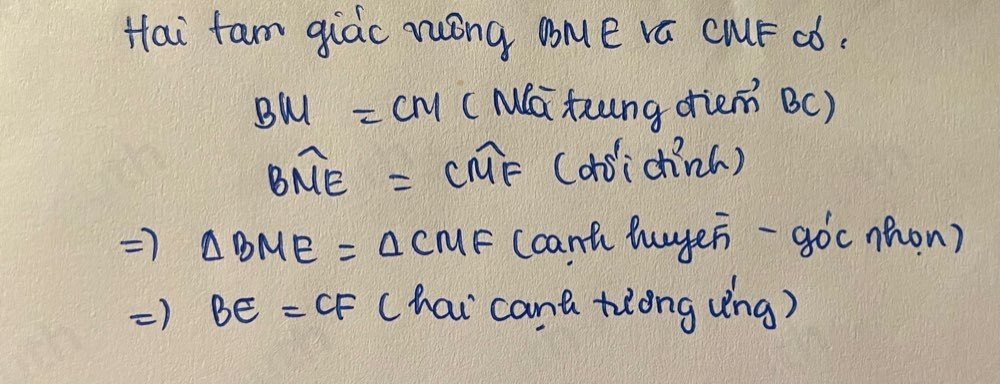 Hai tam giác vuông BME và CMF có:
BM = CM (M là trung điểm BC)
BM̂E = CM̂F (đối đỉnh)
=) ΔBME = ΔCMF (cạnh huyền - góc nhọn)
=) BE = CF (hai cạnh tương ứng)